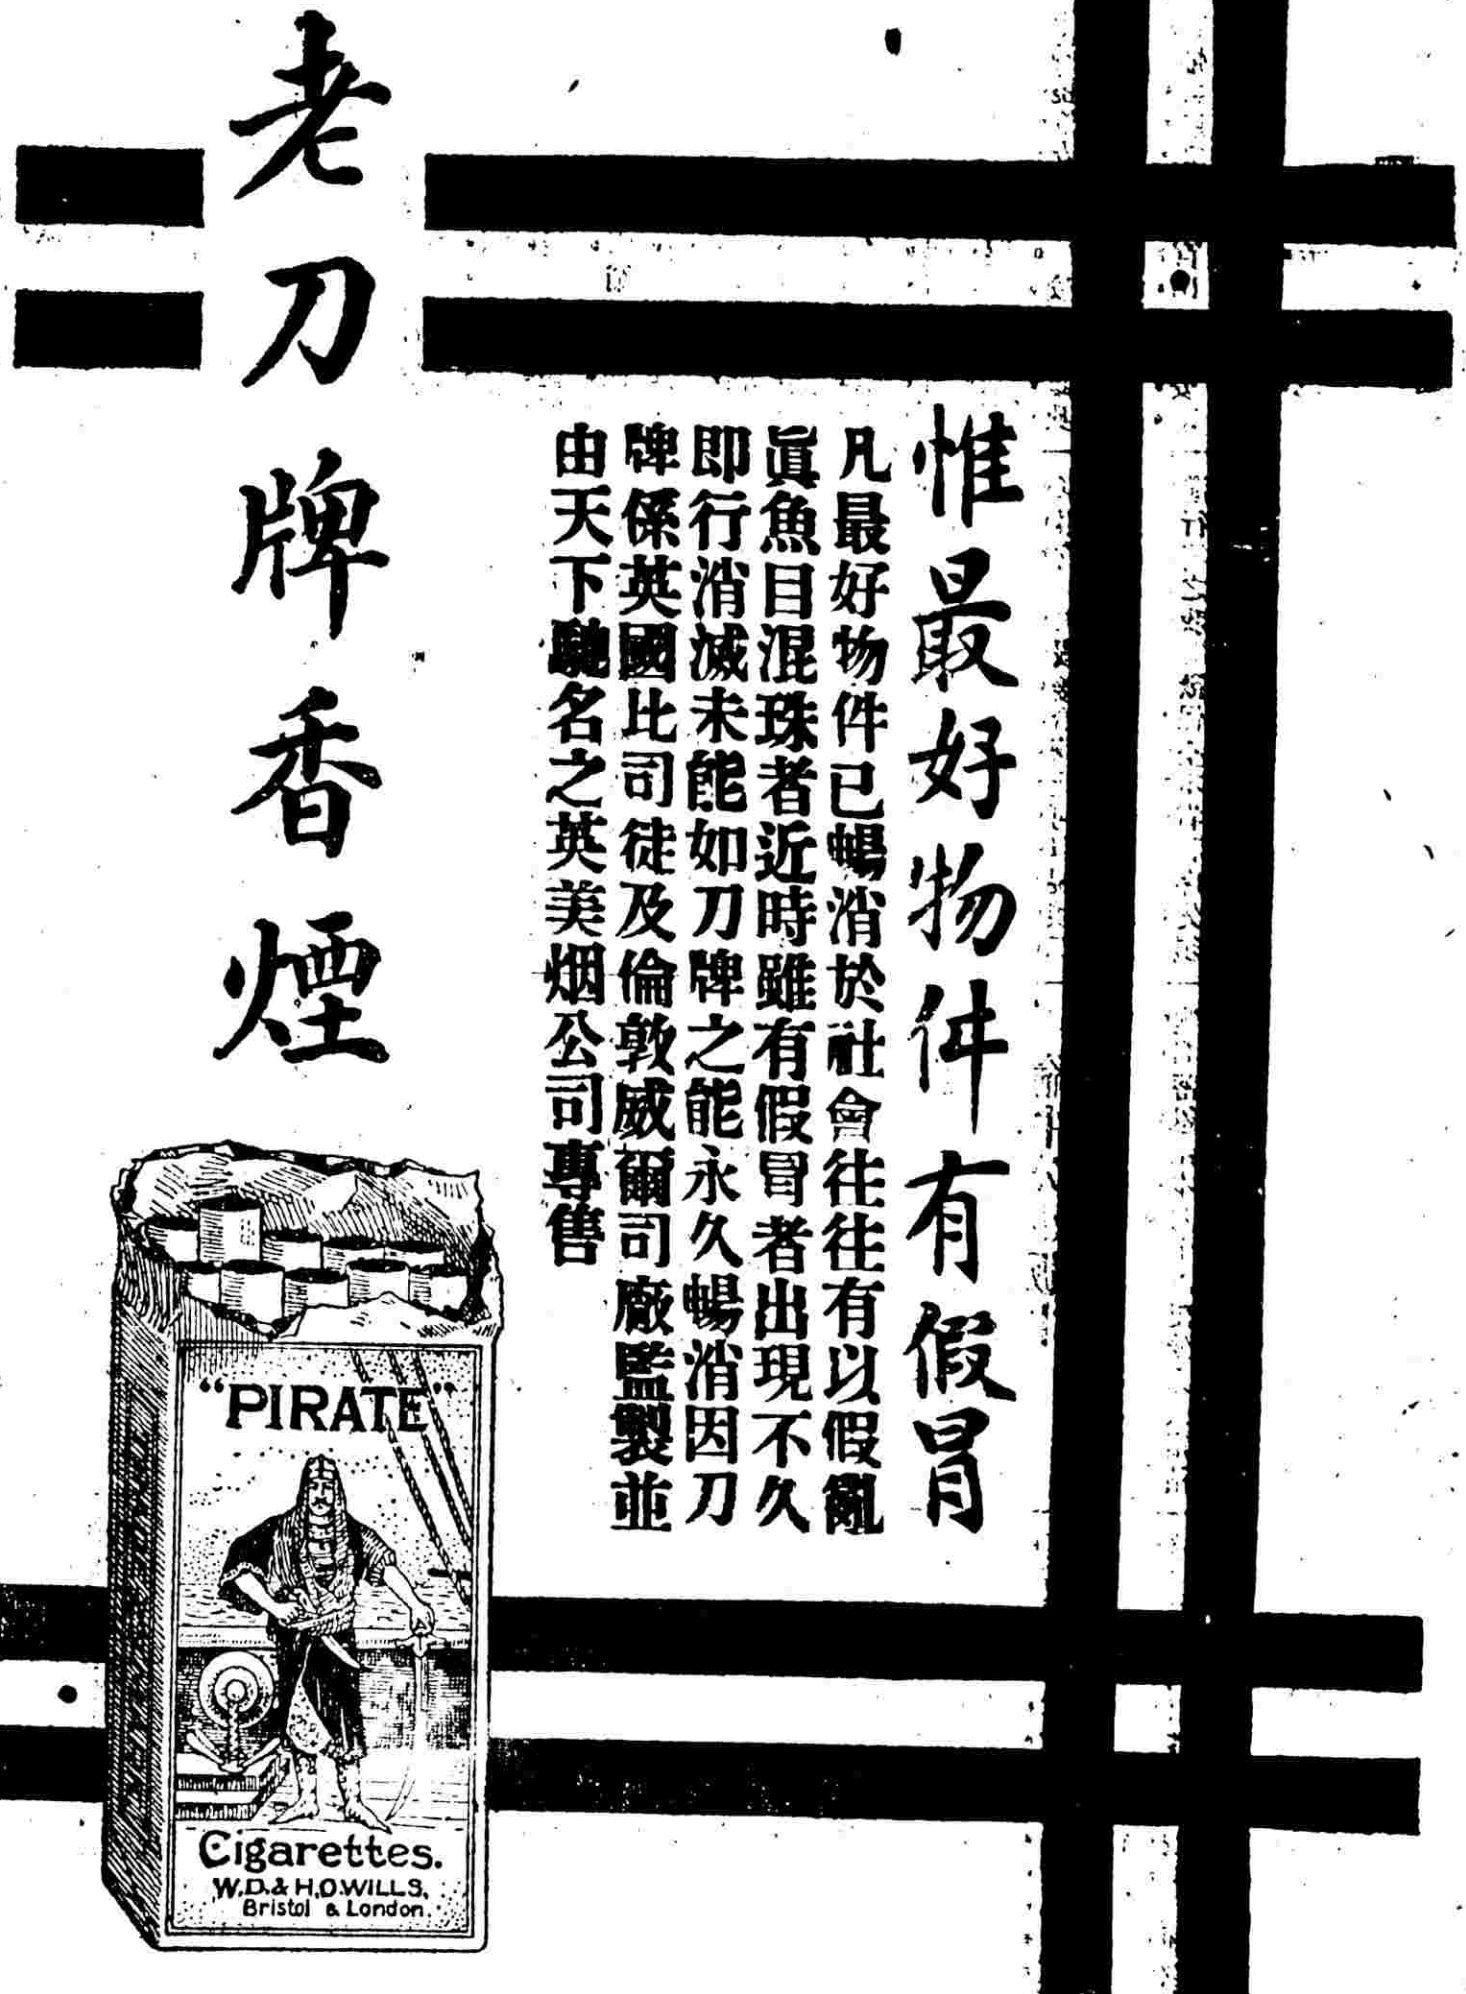 惟最好物件有假冒
凡最好物件已暢消於社會往往有以假亂
眞魚目混珠者近時雖有假冒者出現不久
即行消滅未能如刀牌之能永久暢消因刀
牌係英國比司徒及倫敦威爾司廠監製並
由天下馳名之英美烟公司專售
老刀牌香煙
"PIRATE"
Cigarettes.
W.D.& H.O.WILLS.
Bristol & London.